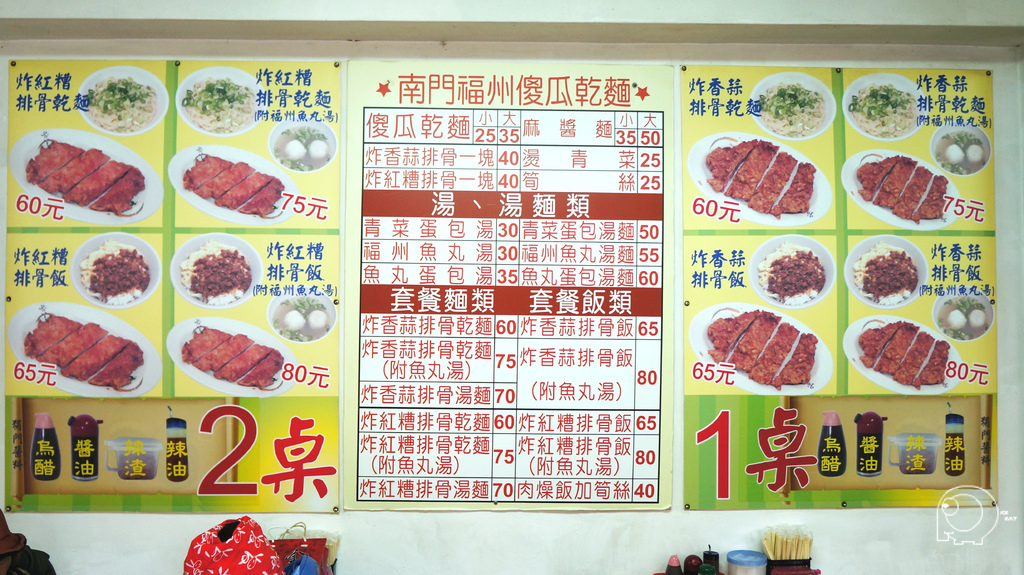 炸紅糟
排骨乾麵
60元
炸紅糟
排骨乾麵
(附福州魚丸湯)
75元
炸紅糟
排骨飯
65元
炸紅糟
排骨飯
(附福州魚丸湯)
80元
烏醋
醬油
辣渣
辣油
2桌
南門福州傻瓜乾麵
傻瓜乾麵 小25 大35 麻醬麵 小35 大50
炸香蒜排骨一塊 40 燙青菜 25
炸紅糟排骨一塊 40 筍絲 25
湯、湯麵類
青菜蛋包湯 30 青菜蛋包湯麵 50
福州魚丸湯 30 福州魚丸湯麵 55
魚丸蛋包湯 35 魚丸蛋包湯麵 60
套餐麵類 套餐飯類
炸香蒜排骨乾麵 60 炸香蒜排骨飯 65
炸香蒜排骨乾麵 (附魚丸湯) 75 炸香蒜排骨飯 (附魚丸湯) 80
炸香蒜排骨湯麵 70
炸紅糟排骨乾麵 60 炸紅糟排骨飯 65
炸紅糟排骨乾麵 (附魚丸湯) 75 炸紅糟排骨飯 (附魚丸湯) 80
炸紅糟排骨湯麵 70 肉燥飯加筍絲 40
炸香蒜
排骨乾麵
60元
炸香蒜
排骨乾麵
(附福州魚丸湯)
75元
炸香蒜
排骨飯
65元
炸香蒜
排骨飯
(附福州魚丸湯)
80元
1桌
烏醋
醬油
辣渣
辣油